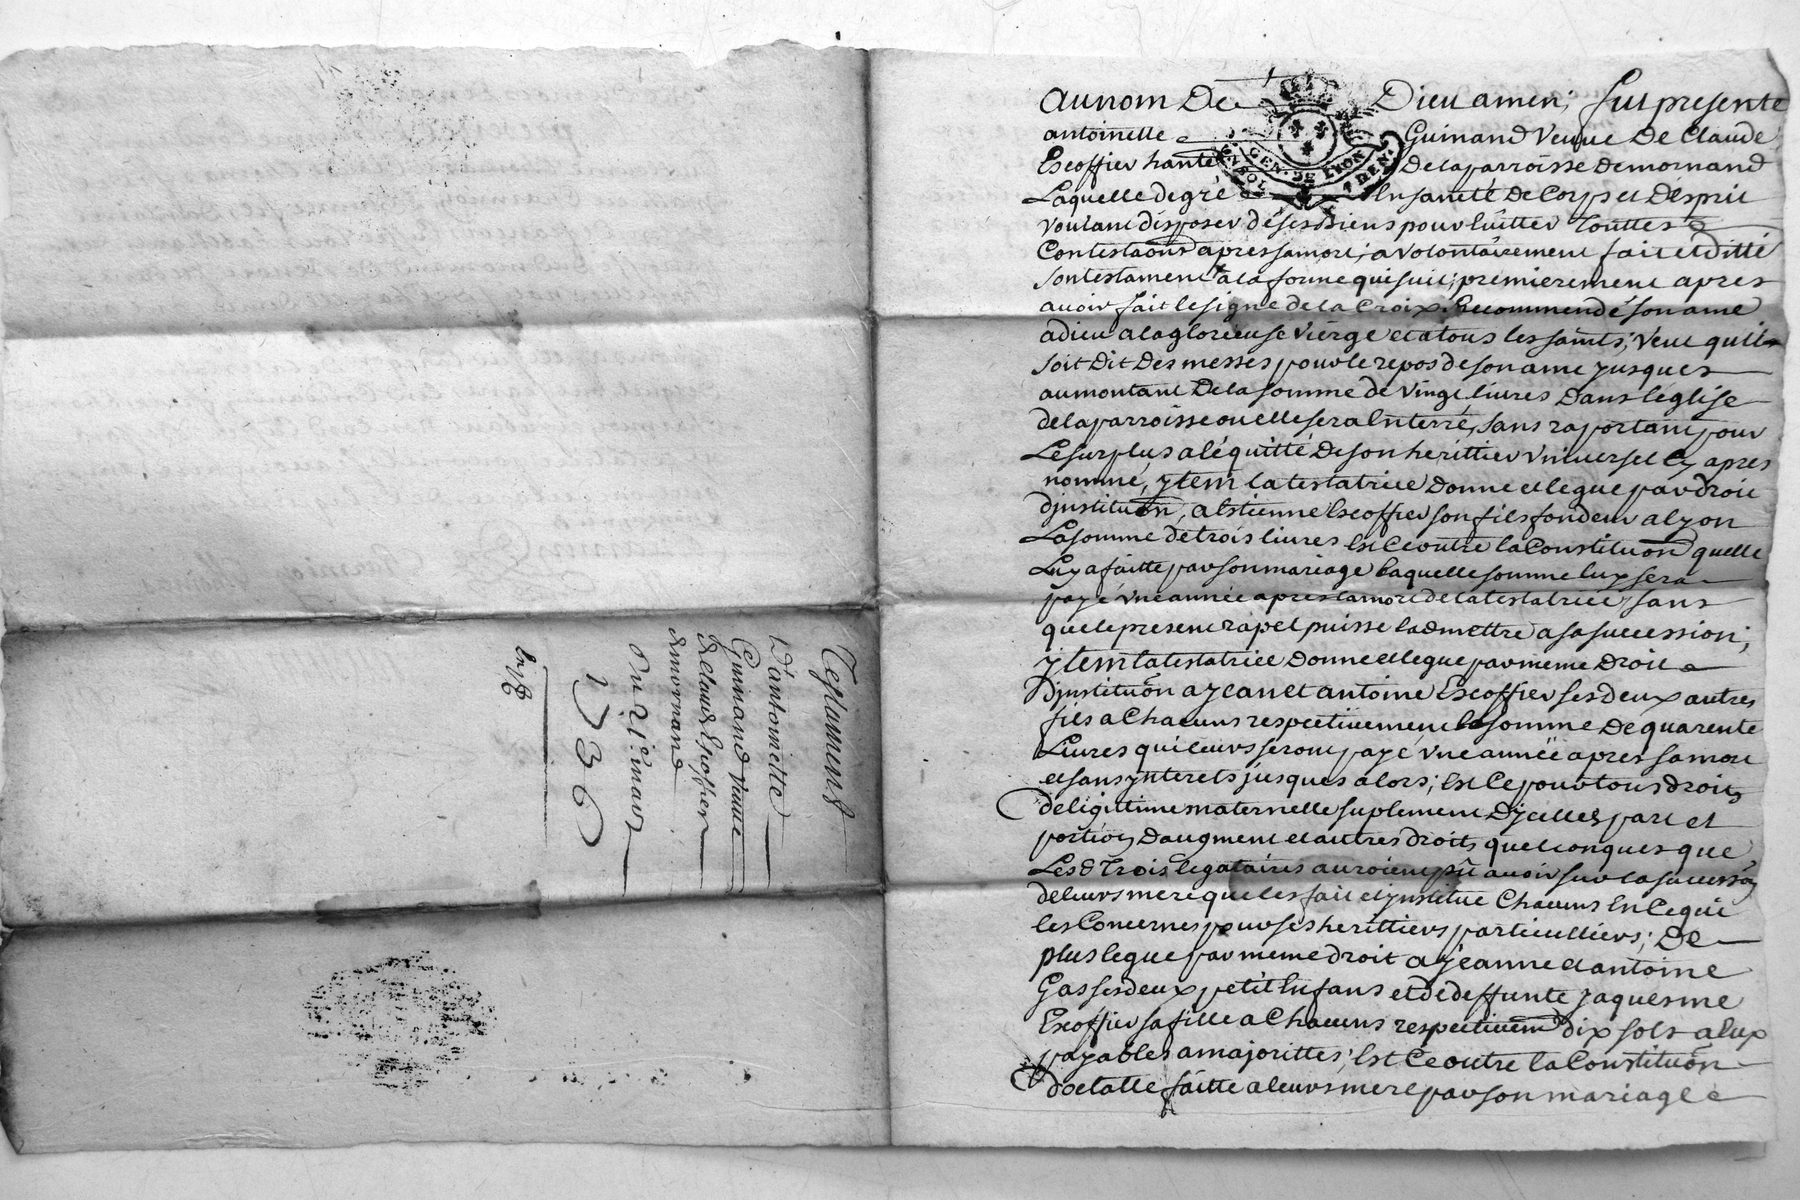 Testament
D'antoinette
Guinand veuve
de claude Escoffier
de mornand
Du 21e. mars
1736
au nom De Dieu amen; fut presente
antoinette Guinand Veuve De Claude
Escoffier hante De la parroisse de mornand
Laquelle de gré En santé De Corps et D'esprit
voulant disposer de ses biens pour Eviter touttes
Contestaons apres sa mort; a volontairement fait et ditté
son testament a la forme qui suit; premierement apres
avoir fait le signe de la Croix. Recommendé son ame
a dieu a la glorieuse vierge et a tous les saints; veut qu'il
soit Dit Des messes pour le repos de son ame jusques
au montant De la somme de vingt livres Dans l'eglise
de la parroisse ou elle sera Enterré, sans raportant pour
Le surplus a l'equitté De son herittier vniversel Cy apres
nommé, ytem la testatrice Donne et legue par droit
d'jnstituon, a Estienne Escoffier son fils fondeur a lyon
La somme de trois livres Est Ce outre la Constituon quelle
Luy a faitte par son mariage Laquelle somme luy sera
payé vne année apres la mort de la testatrice, sans
que le present rapel puisse l'admettre a sa succession;
ytem la testatrice Donne et legue par meme Droit
D'jnstituon a jean et antoine Escoffier ses deux autres
fils a Chacuns respectivement la somme De quarente
Livres qui leurs seront payé vne année apres sa mort
et sans ynterets jusques alors; Est Ce pour tous droits
de ligitime maternelle suplement D'jcelles part et
portion D'augment et autres droits quelconques que
Lesd. Trois legataires auroient pû avoir sur la succession
de leurs mere que les fait et jnstitue Chacuns En Ce qui
les Concernes pour ses herittiers particulliers; De
plus legue par meme droit a jeanne et antoine
Gas ses deux petit Enfans et de deffunte jaquesme
Escoffier sa fille a Chacuns respectivem dix sols a Eux
payables a majorittes; Est Ce outre la Constituon
dotalle faitte a leurs mere par son mariage
GEN. DE LYON